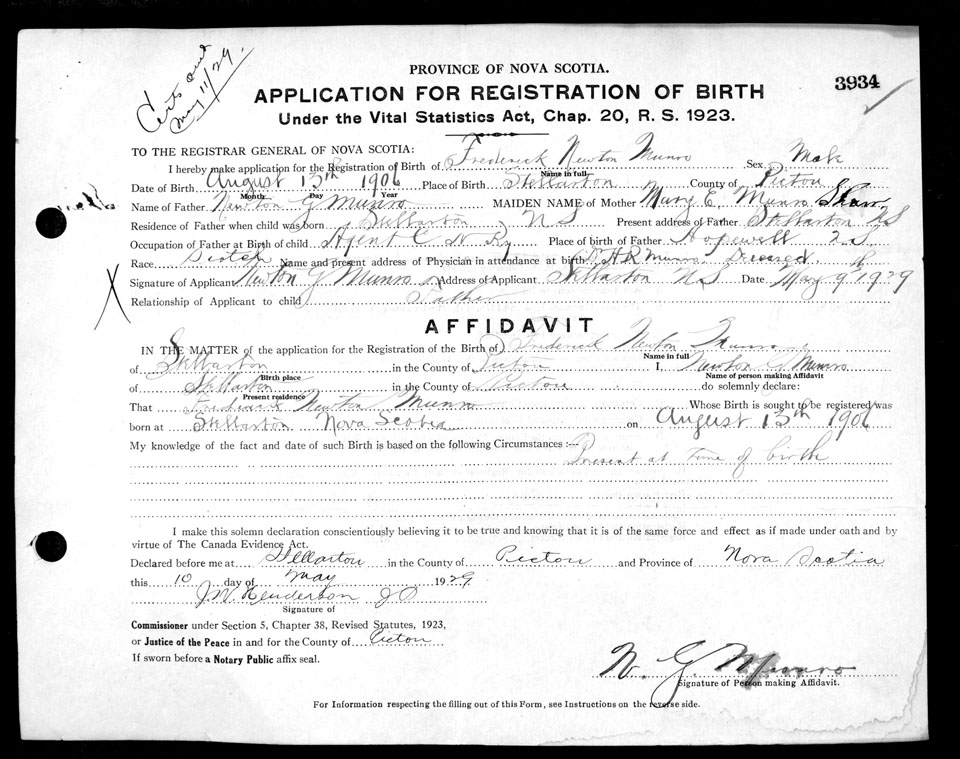 Certs out
May 11/29.
PROVINCE OF NOVA SCOTIA.
3934
APPLICATION FOR REGISTRATION OF BIRTH
Under the Vital Statistics Act, Chap. 20, R. S. 1923.
TO THE REGISTRAR GENERAL OF NOVA SCOTIA:
I hereby make application for the Registration of Birth of Frederick Newton Munro Sex Male
Name in full
Date of Birth August 13th 1906 Place of Birth Stellarton County of Pictou
Month Day Year
Name of Father Newton G Munro MAIDEN NAME of Mother Mary C. Munro Shaw
Residence of Father when child was born Stellarton N S Present address of Father Stellarton NS
Occupation of Father at Birth of child Agent C N Ry Place of birth of Father Hopewell N.S.
Race Scotch Name and present address of Physician in attendance at birth Dr H R Munro. Deceased.
Signature of Applicant Newton G Munro Address of Applicant Stellarton N.S Date May 9th 1929
Relationship of Applicant to child Father
AFFIDAVIT
IN THE MATTER of the application for the Registration of the Birth of Frederick Newton Munro
Name in full
of Stellarton in the County of Pictou I, Newton G Munro
Birth place Name of person making Affidavit
of Stellarton in the County of Pictou do solemnly declare:
Present residence
That Frederick Newton Munro Whose Birth is sought to be registered was
born at Stellarton Nova Scotia on August 13th 1906
My knowledge of the fact and date of such Birth is based on the following Circumstances :—
Present at time of birth
I make this solemn declaration conscientiously believing it to be true and knowing that it is of the same force and effect as if made under oath and by
virtue of The Canada Evidence Act.
Declared before me at Stellarton in the County of Pictou and Province of Nova Scotia
this 10 day of May 1929
J. W. Henderson J P
Signature of
Commissioner under Section 5, Chapter 38, Revised Statutes, 1923,
or Justice of the Peace in and for the County of Pictou
If sworn before a Notary Public affix seal.
N. G. Munro
Signature of Person making Affidavit.
For Information respecting the filling out of this Form, see Instructions on the reverse side.